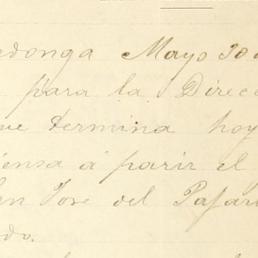 donga Mayo 30
para la Direc
ue termina hoy
iensa á parir el
an Jose del Pasar
do.